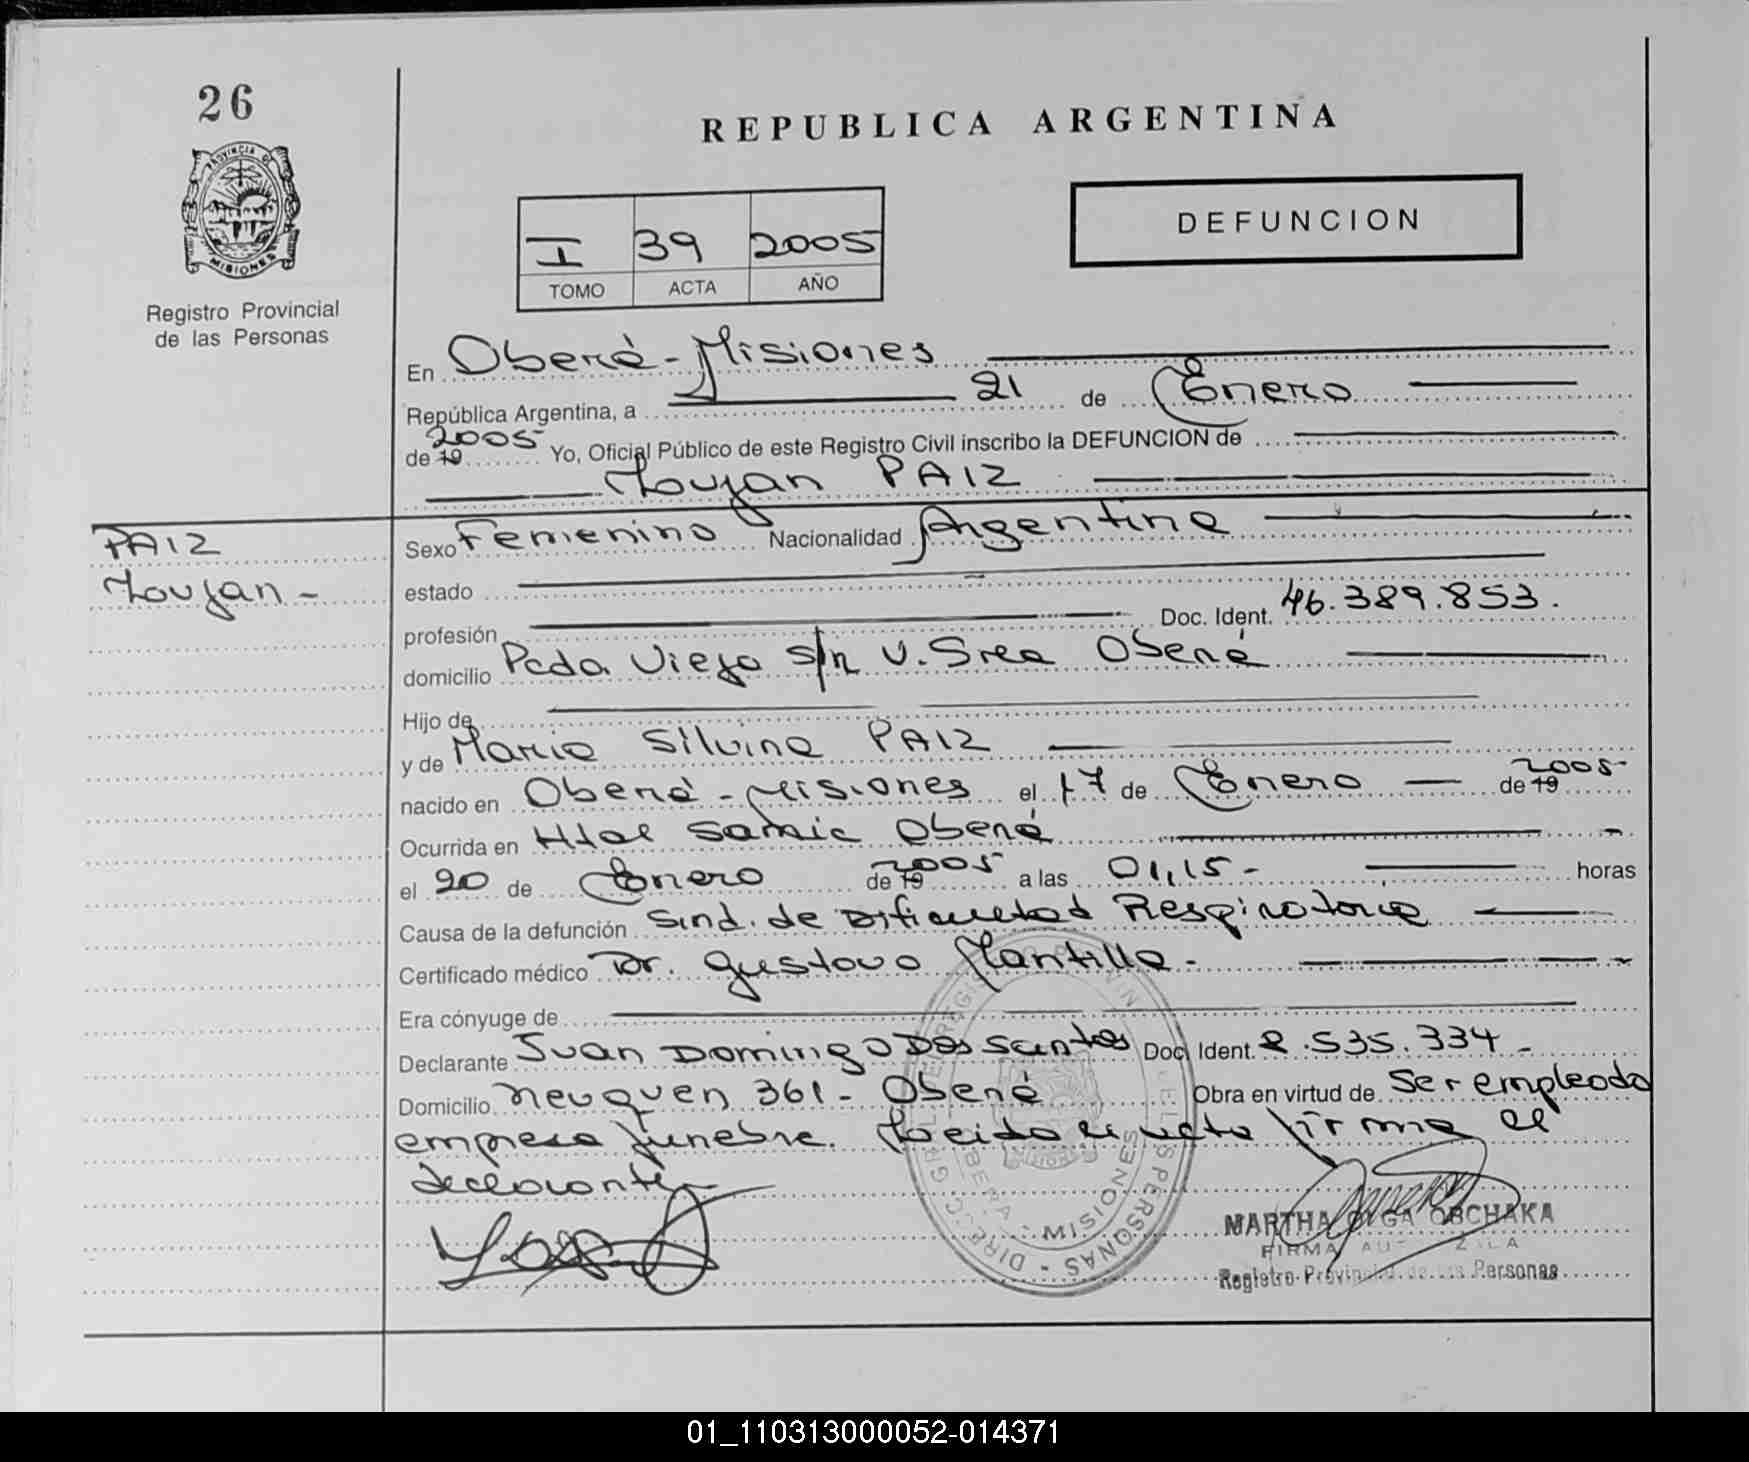 26
REPUBLICA ARGENTINA
PROVINCIA DE
MISIONES
Registro Provincial
de las Personas
I 39 2005
TOMO ACTA AÑO
DEFUNCION
En Oberá - Misiones
República Argentina, a 21 de Enero
de 19 2005 Yo, Oficial Público de este Registro Civil inscribo la DEFUNCION de
PAIZ
PAIZ
Sexo Femenino Nacionalidad Argentina
estado
profesión Doc. Ident. 46.389.853.
domicilio Pcda. Vieja s/n V. Srea Oberá
Hijo de
y de Maria Silvina PAIZ
nacido en Oberá - Misiones el 17 de Enero de 19 2005
Ocurrida en Htal Samic Oberá
el 20 de Enero de 19 2005 a las 01,15 - horas
Causa de la defunción Sind. de Dificultad Respiratoria
Certificado médico Dr. Gustavo Mantilla -
Era cónyuge de
Declarante Juan Domingo Dos Santos Doc. Ident. 8.535.334 -
Domicilio Neuquen 361 - Oberá Obra en virtud de Ser empleado
empresa funebre. Leida el acta firma el
declarante
MARTHA OLGA OBCHAKA
FIRMA AUTORIZADA
Registro Provincial de las Personas
MISIONES
01_110313000052-014371